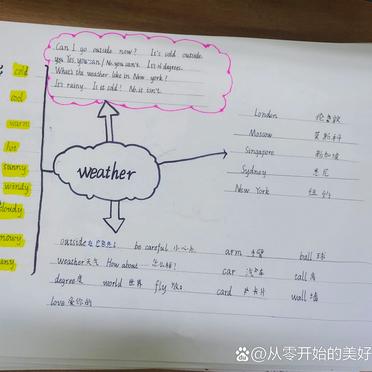 Can I go outside now? It's cold outside.
you. Yes, you can / No, you can't. It's degrees.
What's the weather like in New York?
It's rainy. Is it cold? No, it isn't.
cold
cool
warm
hot
sunny
windy
cloudy
snowy
weather
London 伦敦
Moscow 莫斯科
Singapore 新加坡
Sydney 悉尼
New York 纽约
outside be careful 小心 arm 手臂 ball 球
weather 天气 How about 怎么样? car 汽车 call 
degree 度 world 世界 fly card 卡片 wall 墙
love 爱你的
@从零开始的美好